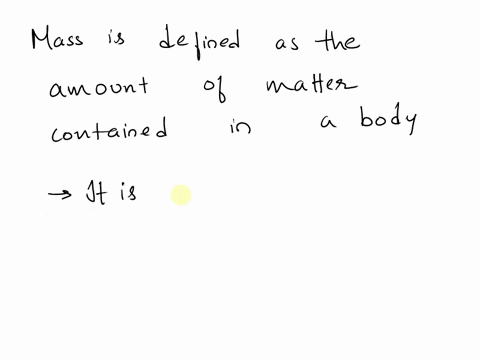 Mass is defined as the
amount of matter
contained in a body
→ It is